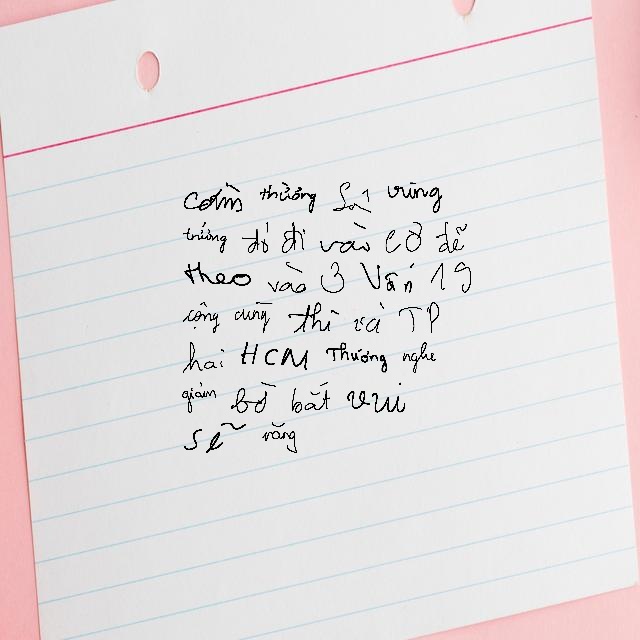 thưởng vùng
trường đó đi vào cơ dễ
theo vào 3 Vấn 19
cộng cũng thì và TP
hai HCM Thương nghe
giảm bờ bất vui
sẽ rằng